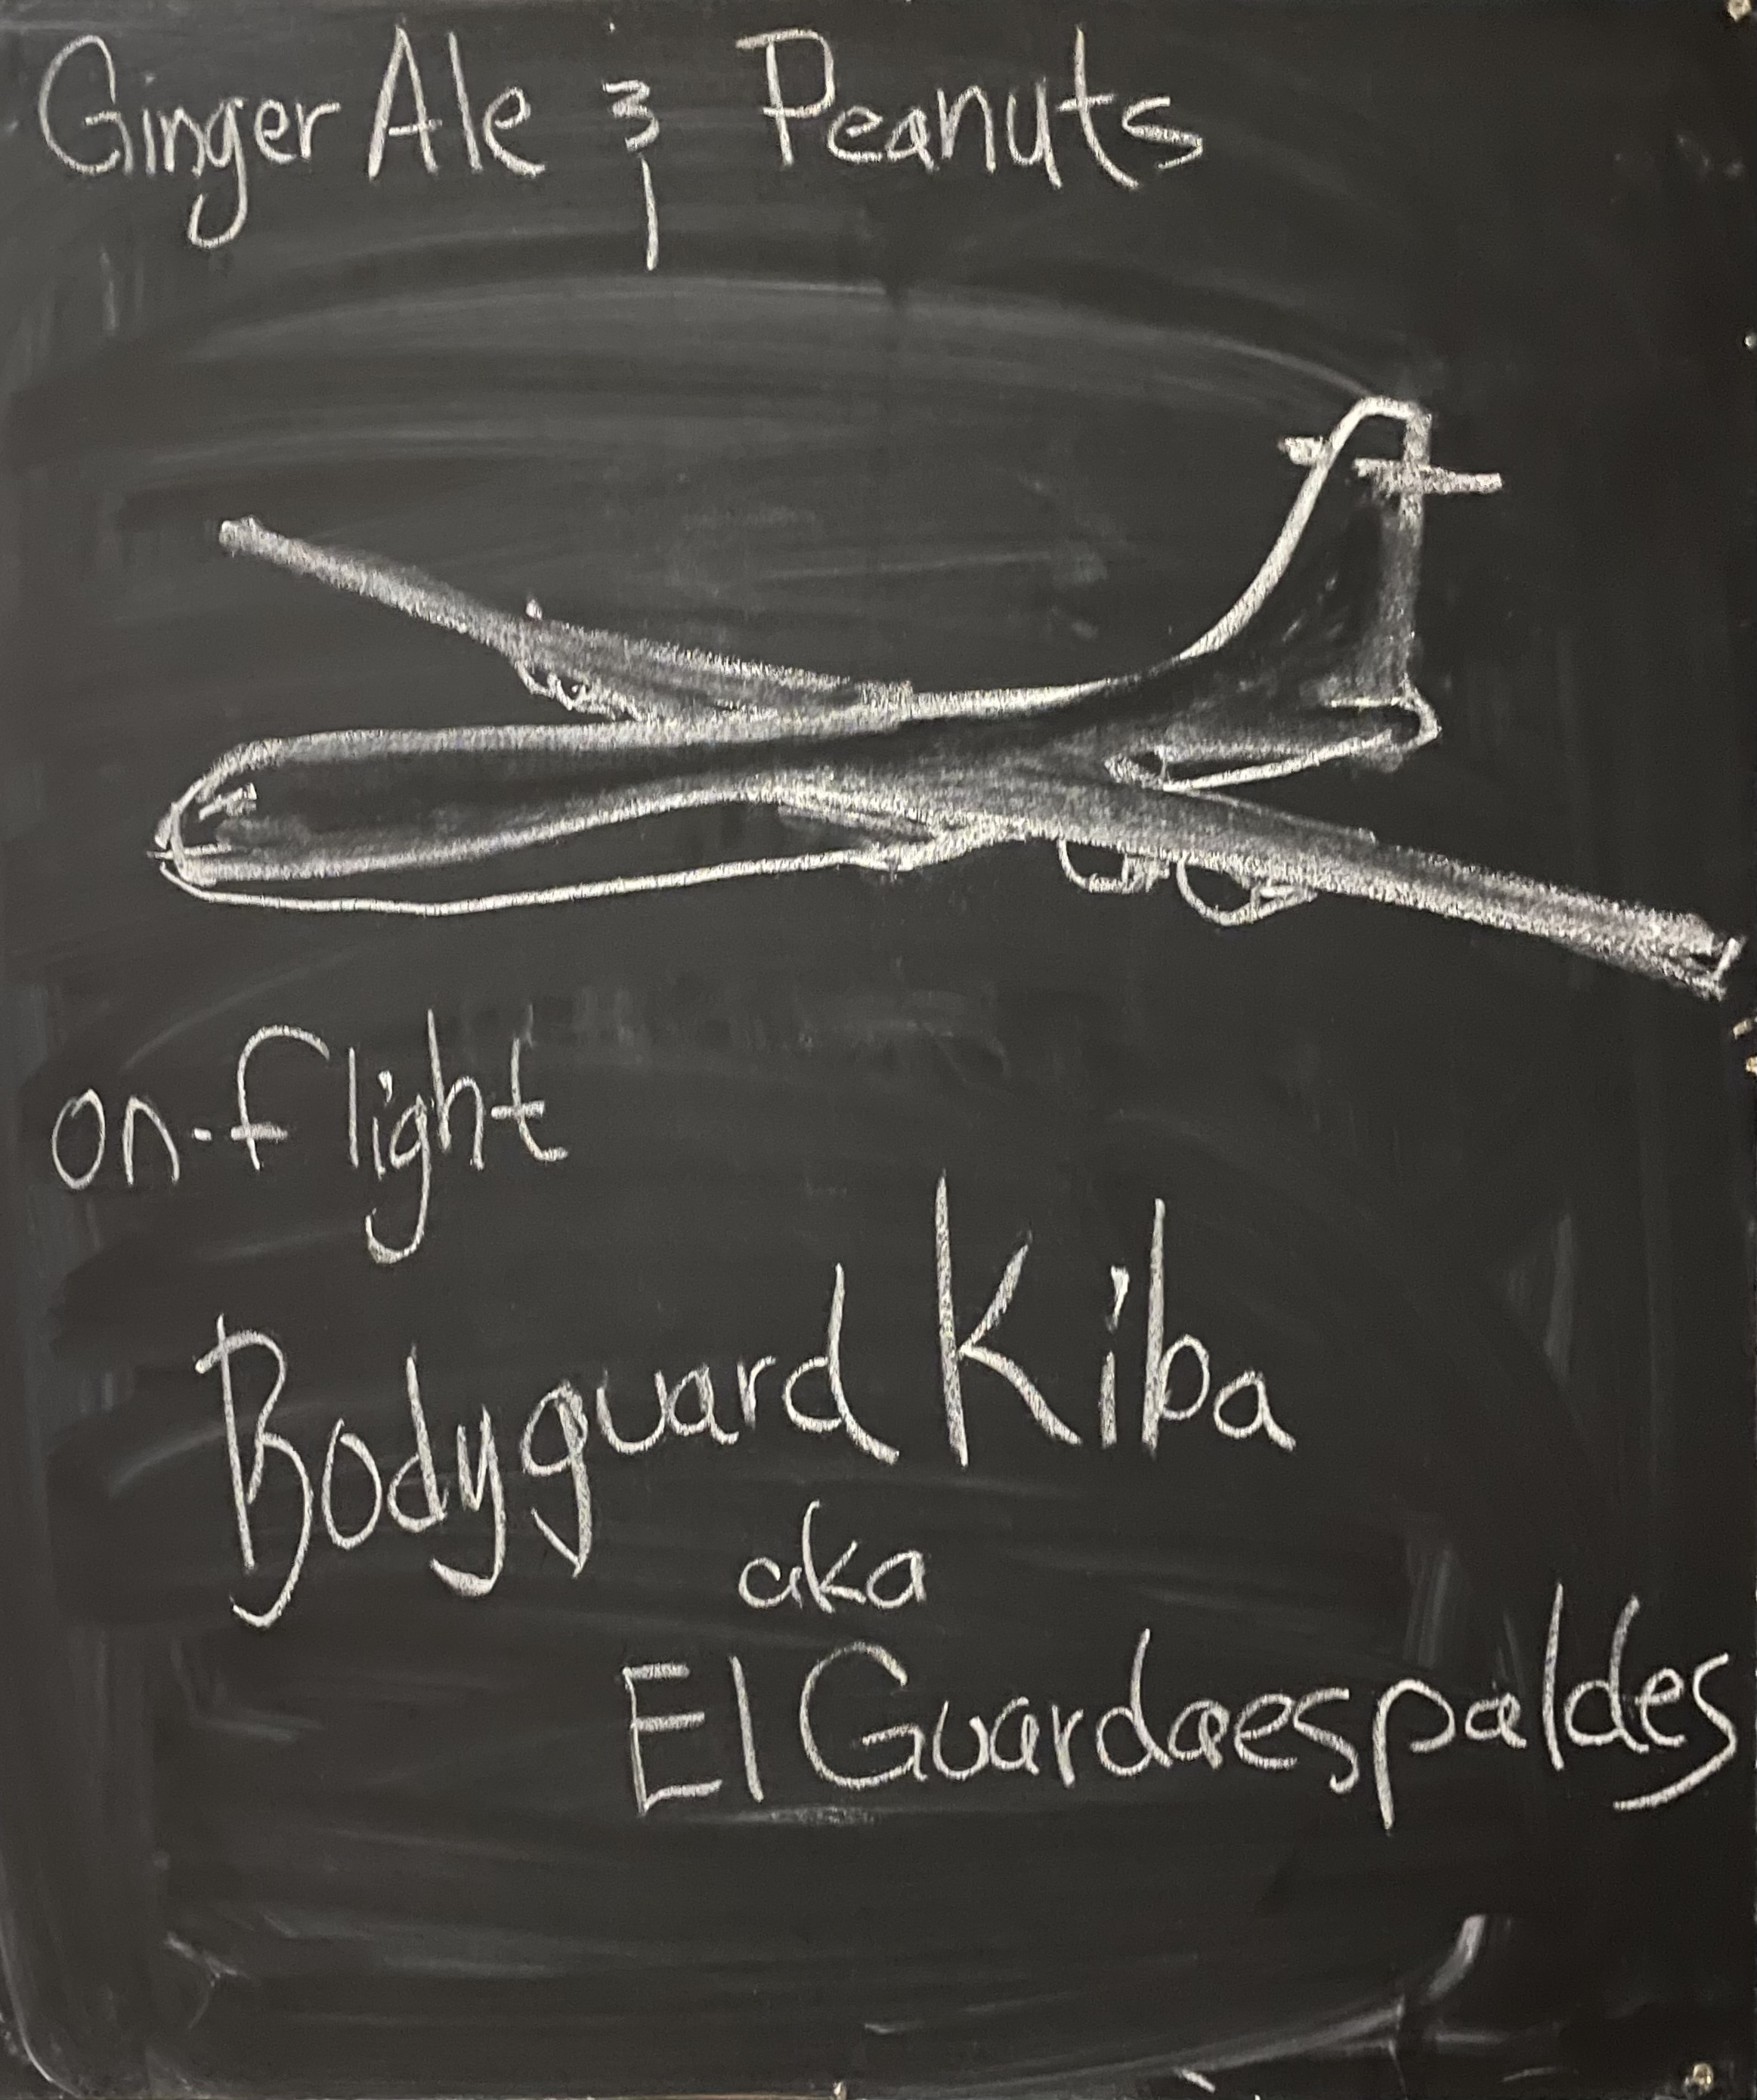 Ginger Ale & Peanuts
on-flight
Bodyguard Kiba
aka
El Guardaespaldes